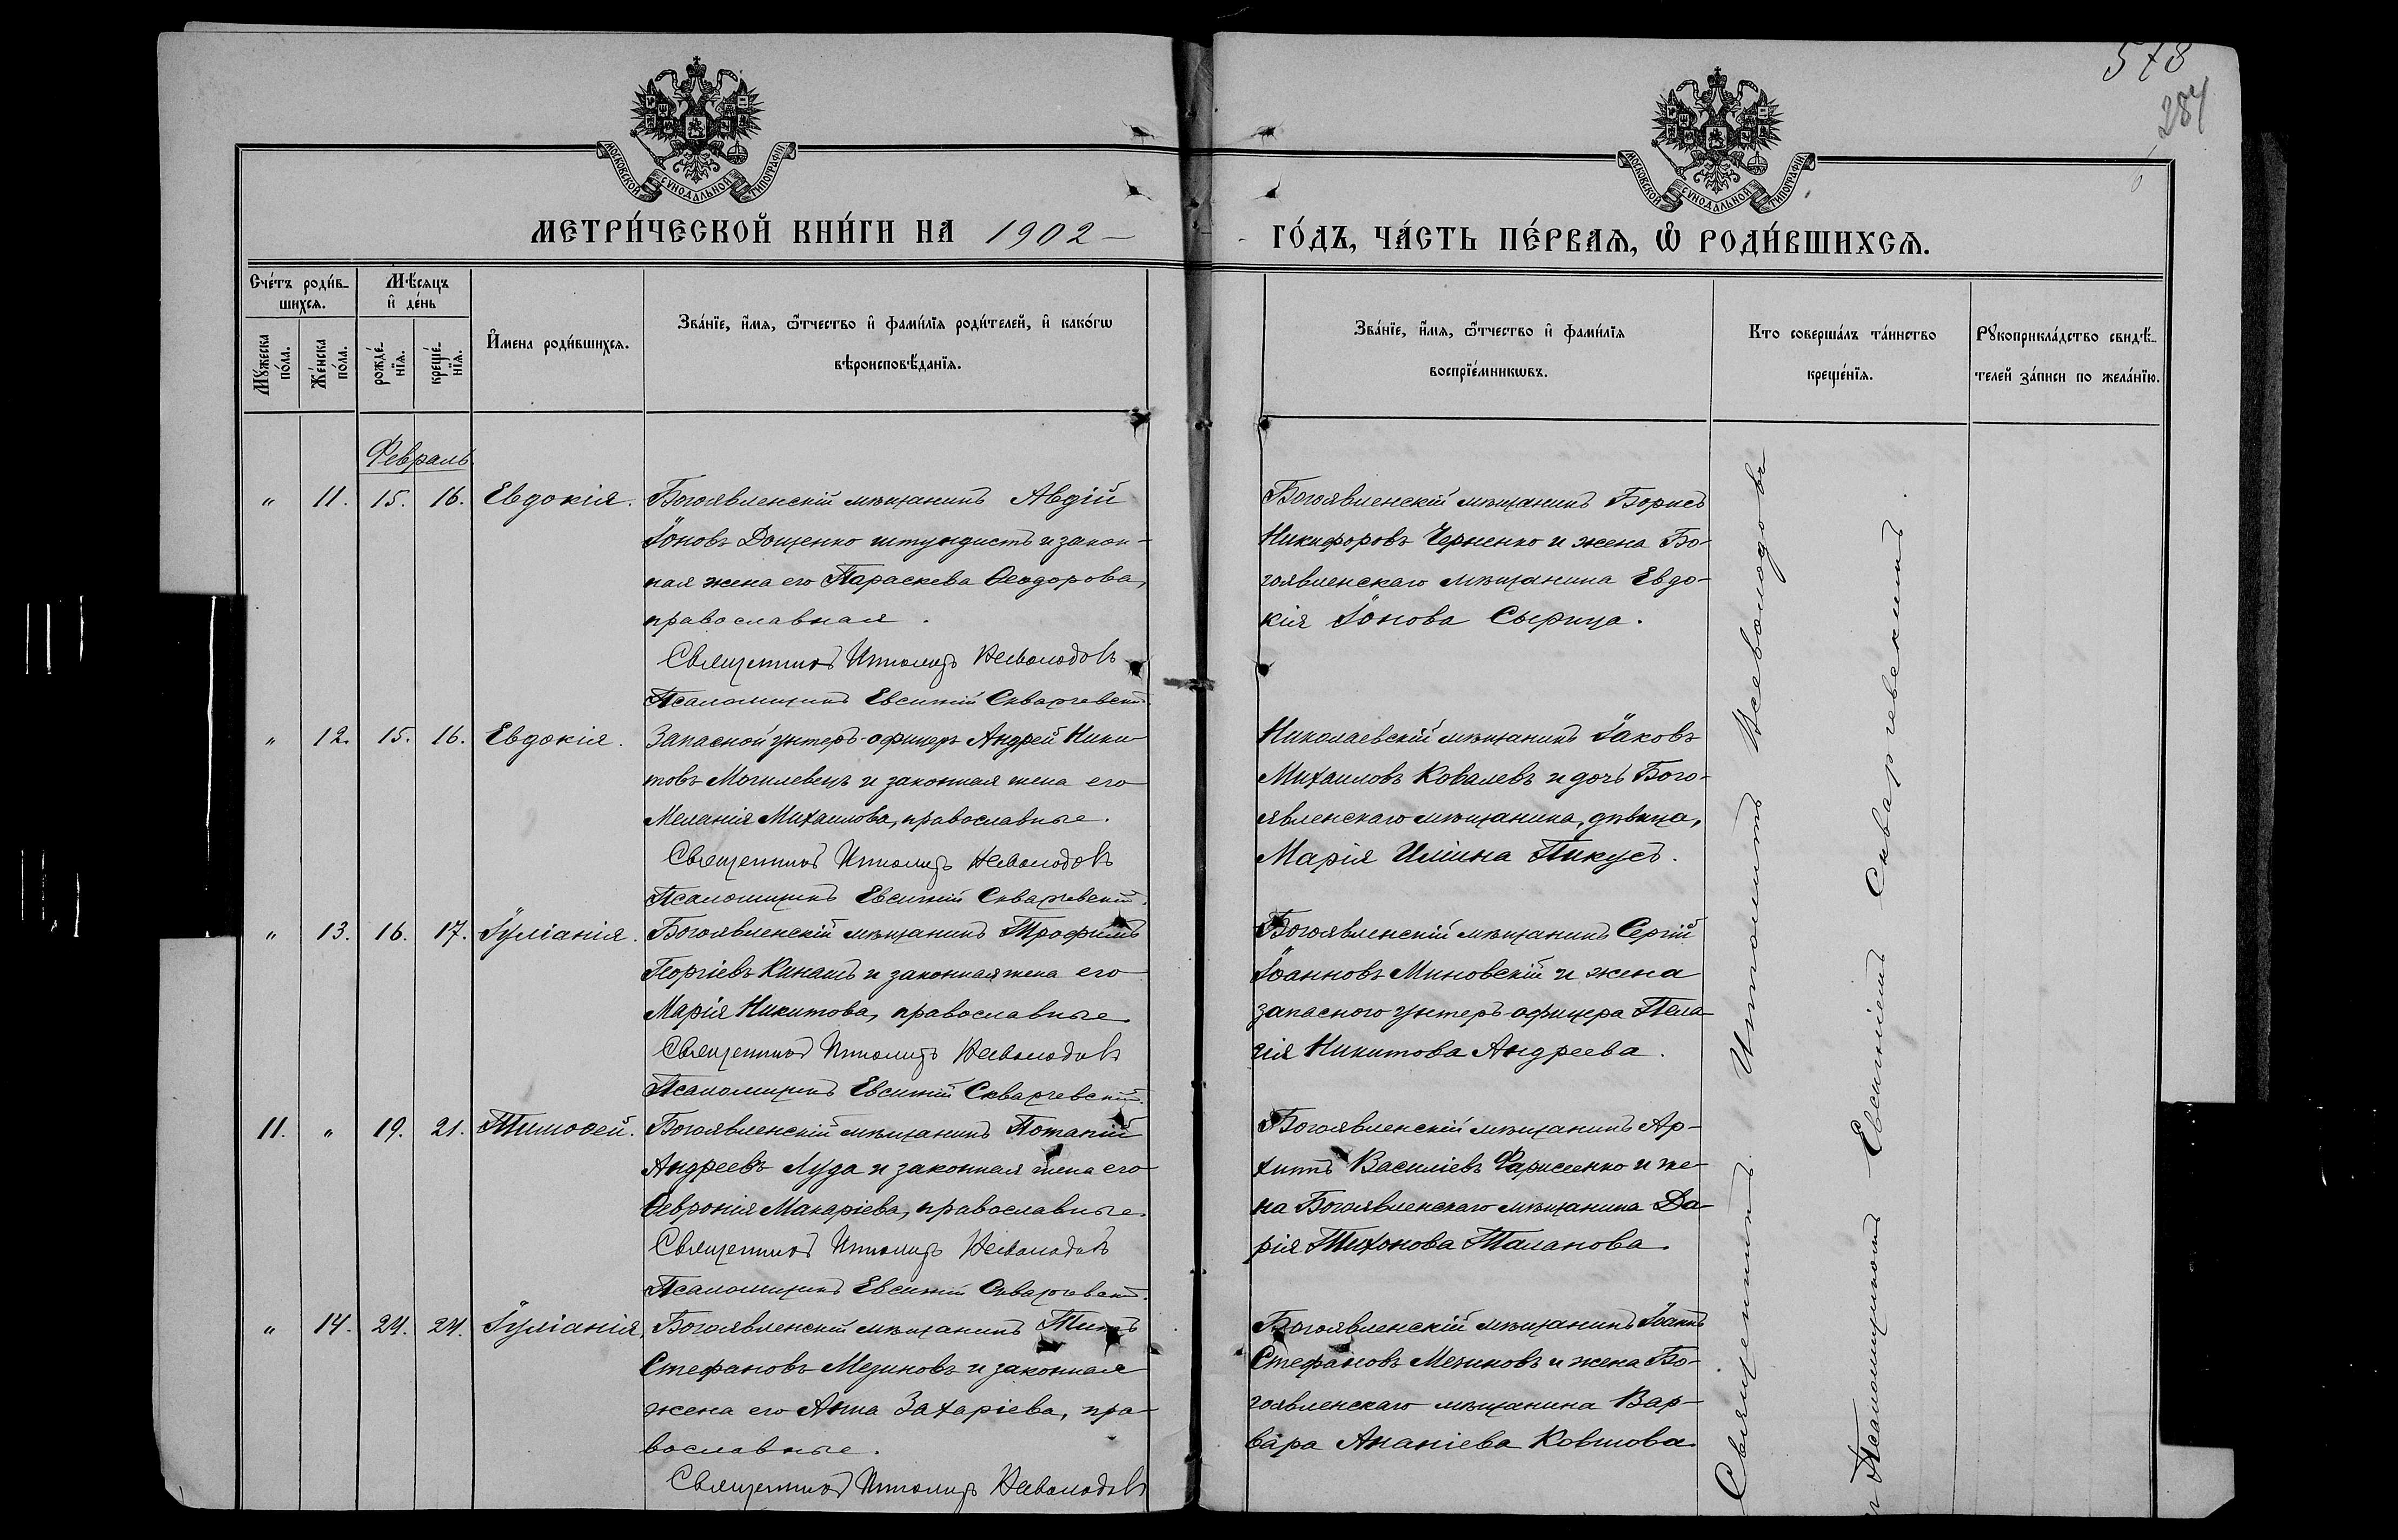 578
284
МОСКОВСКОЙ СУНОДАЛЬНОЙ ТИПОГРАФІИ
МОСКОВСКОЙ СУНОДАЛЬНОЙ ТИПОГРАФІИ
МЕТРИ́ЧЕСКОЙ КНИ́ГИ НА 1902 –
ГО́ДЪ, ЧА́СТЬ ПЕ́РВАЯ, Ѡ РОДИ́ВШИХСЯ.
Сче́тъ роди́в-
шихся.
Мѣ́сяцъ
и де́нь
Му́жеска
по́ла.
Же́нска
по́ла.
рожде́-
нїя.
креще́-
нїя.
И́мена роди́вшихся.
Зва́нїе, и́мя, ѻ́тчество и фами́лїя роди́телей, и како́гѡ
вѣроисповѣ́данїя.
Зва́нїе, и́мя, ѻ́тчество и фами́лїя
воспрїе́мникѡвъ.
Кто соверша́лъ та́инство
креще́нїя.
Рукоприкла́дство свидѣ́-
телей за́писи по жела́нїю.
Февраль
" 11. 15. 16. Евдокія. Богоявленскій мѣщанинъ Авдій
Іоновъ Дощенко штундистъ и закон-
ная жена его Параскева Ѳеодорова,
православная.
Священникъ Ипполитъ Всеволодовъ
Псаломщикъ Евсигній Скваржевскій.
Богоявленскій мѣщанинъ Борисъ
Никифоровъ Черненко и жена Бо-
гоявленскаго мѣщанина Евдо-
кія Іонова Сырица.
" 12. 15. 16. Евдокія. Запасной унтеръ-офицеръ Андрей Ники-
товъ Могилевецъ и законная жена его
Меланія Михаилова, православные.
Священникъ Ипполитъ Всеволодовъ
Псаломщикъ Евсигній Скваржевскій.
Николаевскій мѣщанинъ Іаковъ
Михаиловъ Ковалевъ и дочь Бого-
явленскаго мѣщанина, дѣвица,
Марія Иліина Пикусъ.
" 13. 16. 17. Іуліанія. Богоявленскій мѣщанинъ Трофимъ
Георгіевъ Кинашъ и законная жена его
Марія Никитова, православные
Священникъ Ипполитъ Всеволодовъ
Псаломщикъ Евсигній Скваржевскій.
Богоявленскій мѣщанинъ Сергій
Іоанновъ Миновскій и жена
запасного унтеръ-офицера Пела-
гія Никитова Андреева.
11. " 19. 21. Тимоѳей. Богоявленскій мѣщанинъ Потапій
Андреевъ Луда и законная жена его
Ѳевронія Макаріева, православные.
Священникъ Ипполитъ Всеволодовъ
Псаломщикъ Евсигній Скваржевскій.
Богоявленскій мѣщанинъ Ар-
хипъ Василіевъ Фарисенко и же-
на Богоявленскаго мѣщанина Да-
рія Тихонова Таланова.
" 14. 24. 24. Іуліанія. Богоявленскій мѣщанинъ Титъ
Стефановъ Мезиновъ и законная
жена его Анна Захаріева, пра-
вославные.
Священникъ Ипполитъ Всеволодовъ
Богоявленскій мѣщанинъ Іоаннъ
Стефановъ Мезиновъ и жена Бо-
гоявленскаго мѣщанина Вар-
вара Ананіева Ковшова.
Священникъ Ипполитъ Всеволодовъ
и Псаломщикомъ Евсигніемъ Скваржевскимъ.